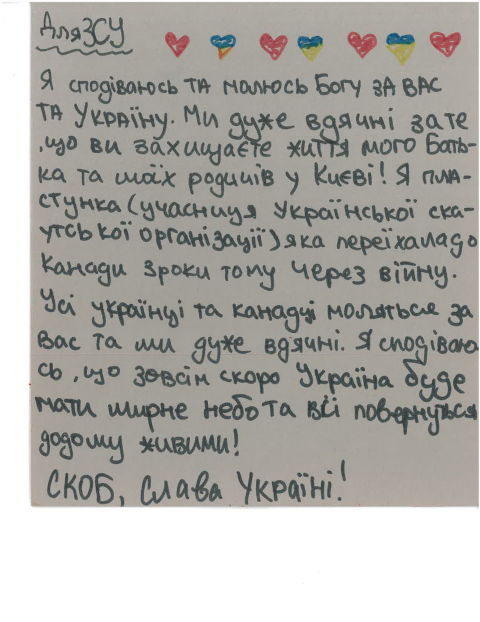 Для ЗСУ
Я сподіваюсь та молюсь Богу за вас
та Україну. Ми дуже вдячні за те
, що ви захищаєте життя мого бать-
ка та моїх родичів у Києві! Я пла-
стунка (учасниця Української ска-
утської організації) яка переїхала до
Канади 3 роки тому через війну.
Усі українці та канадці моляться за
вас та ми дуже вдячні. Я сподіваю
сь, що зовсім скоро Україна буде
мати мирне небо та всі повернуться
додому живими!
СКОБ, Слава Україні!